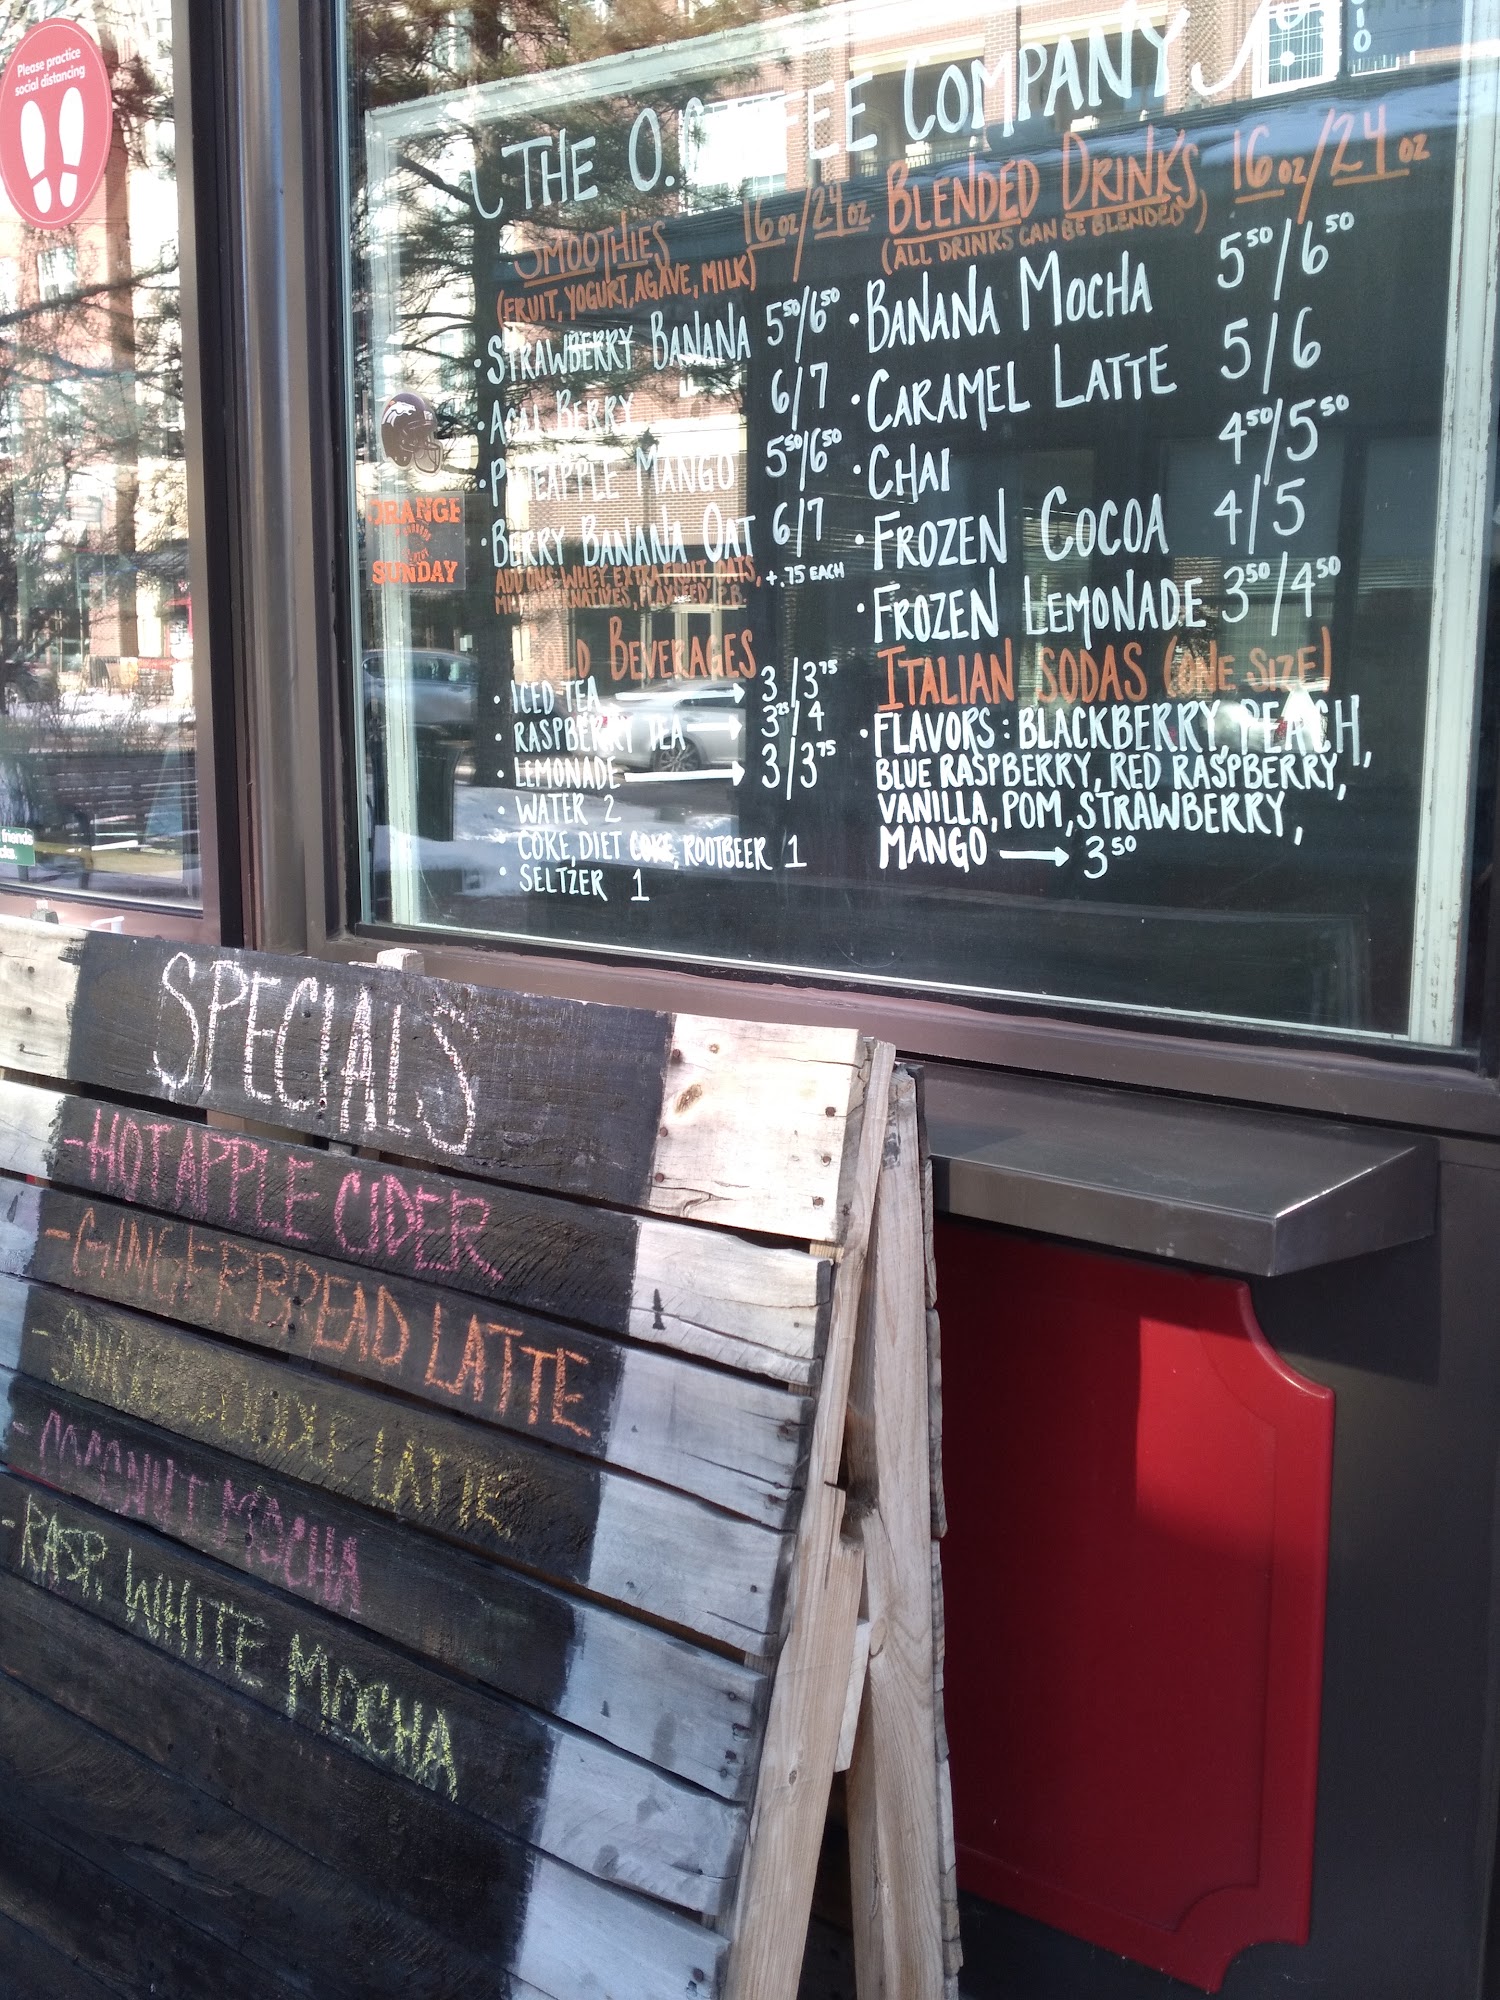 Please practice
social distancing
THE O. COFFEE COMPANY
SMOOTHIES 16 oz/24 oz
(FRUIT, YOGURT, AGAVE, MILK)
· STRAWBERRY BANANA 5⁵⁰/6⁵⁰
· ACAI BERRY 6/7
· PINEAPPLE MANGO 5⁵⁰/6⁵⁰
· BERRY BANANA OAT 6/7
ADD ONS: WHEY, EXTRA FRUIT, OATS, +.75 EACH
MILK ALTERNATIVES, FLAXSEED, P.B.
COLD BEVERAGES
· ICED TEA → 3/3⁷⁵
· RASPBERRY TEA → 3²⁵/4
· LEMONADE → 3/3⁷⁵
· WATER 2
· COKE, DIET COKE, ROOTBEER 1
· SELTZER 1
BLENDED DRINKS 16 oz/24 oz
(ALL DRINKS CAN BE BLENDED)
· BANANA MOCHA 5⁵⁰/6⁵⁰
· CARAMEL LATTE 5/6
· CHAI 4⁵⁰/5⁵⁰
· FROZEN COCOA 4/5
· FROZEN LEMONADE 3⁵⁰/4⁵⁰
ITALIAN SODAS (ONE SIZE)
· FLAVORS: BLACKBERRY, PEACH,
BLUE RASPBERRY, RED RASPBERRY,
VANILLA, POM, STRAWBERRY,
MANGO → 3⁵⁰
ORANGE
SUNDAY
friends
SPECIALS
-HOT APPLE CIDER
-GINGERBREAD LATTE
-LATTE
-COCONUT MOCHA
-RASP. WHITE MOCHA